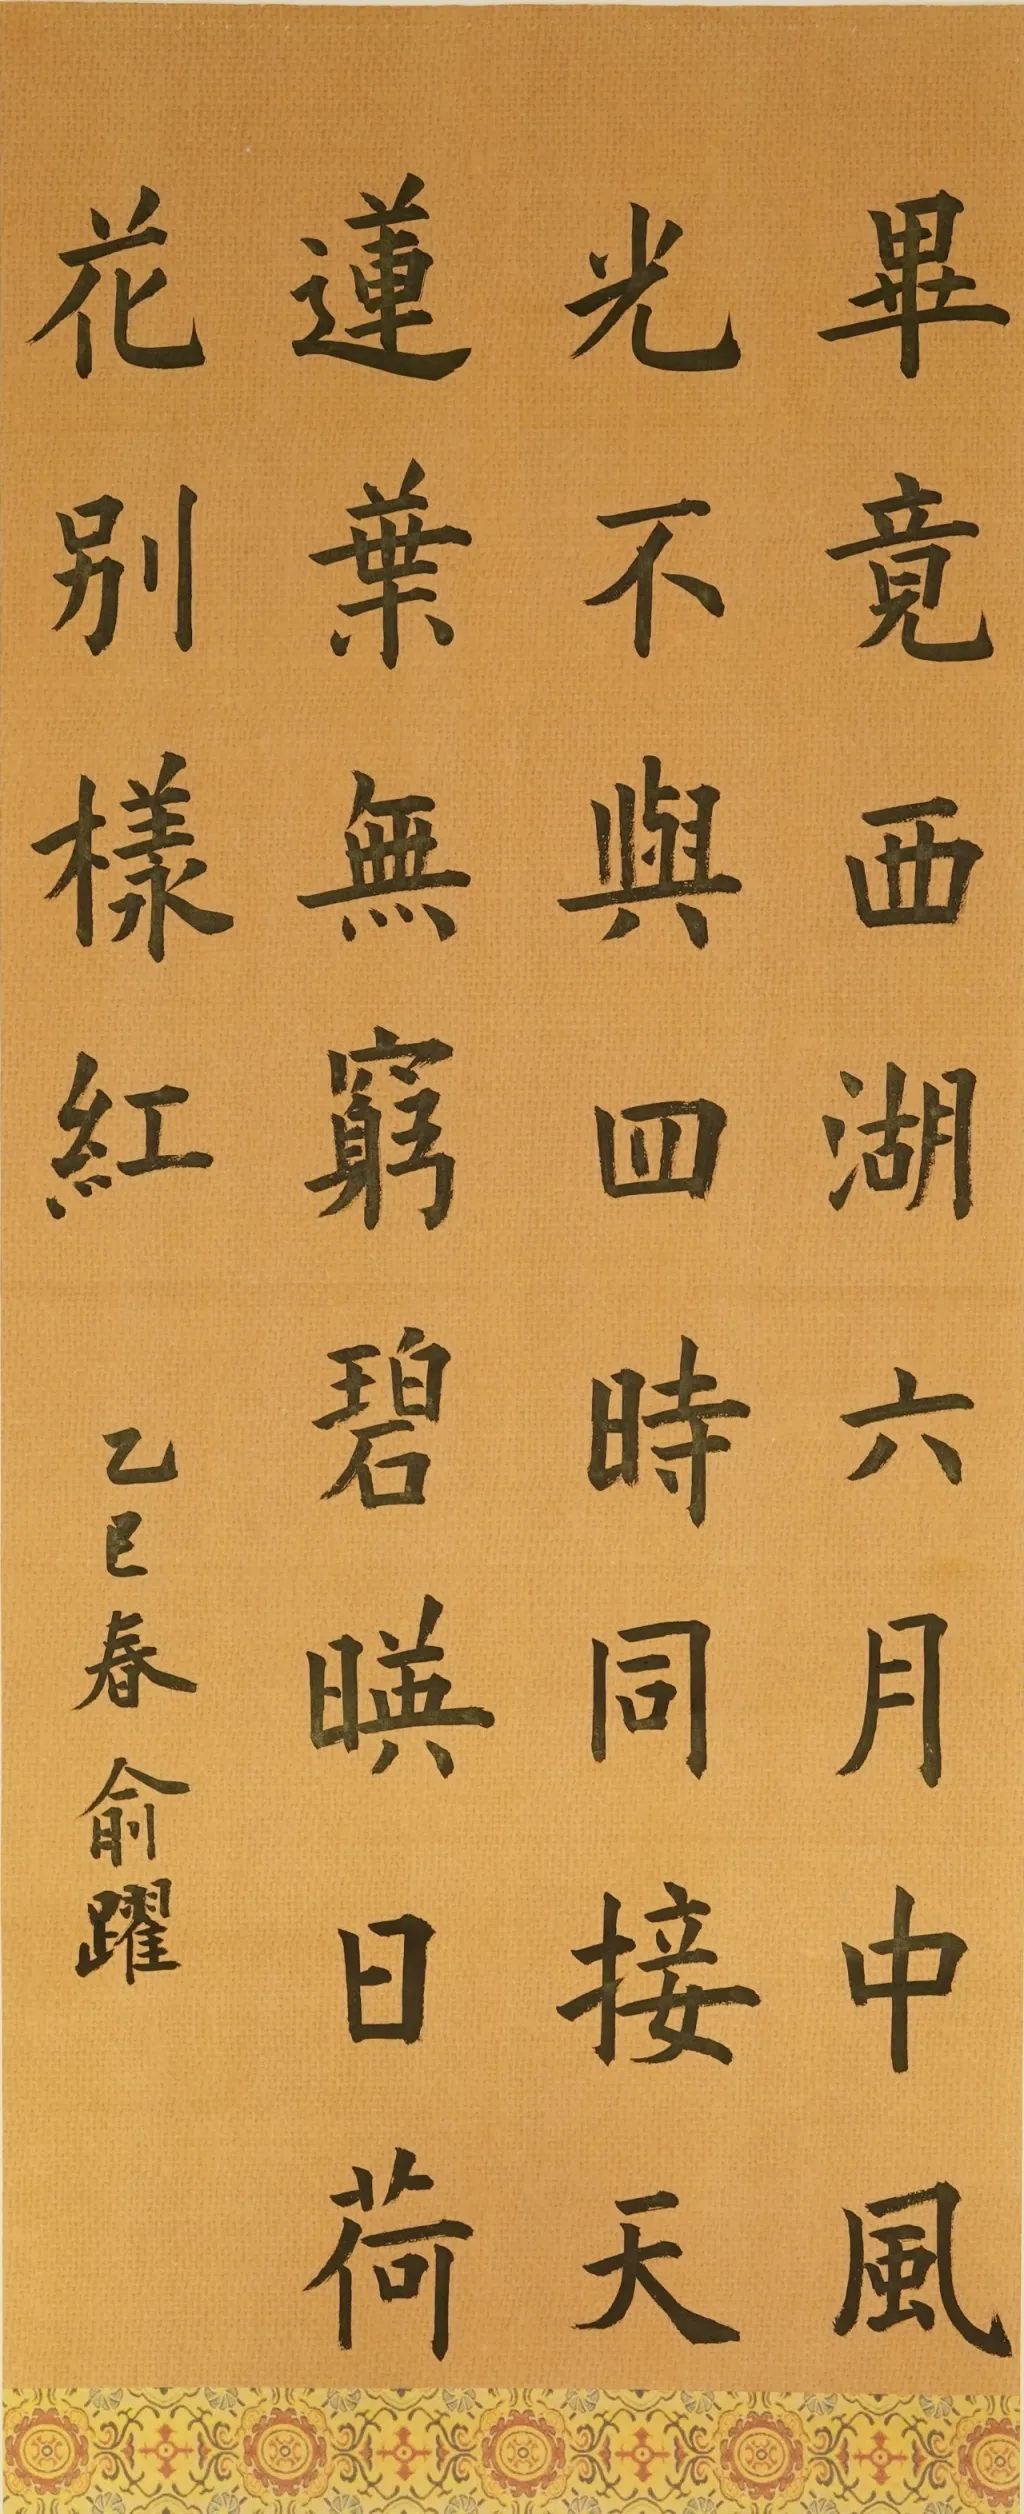 畢竟西湖六月中風
光不與四時同接天
蓮葉無窮碧暎日荷
花别樣紅
乙巳春俞躍